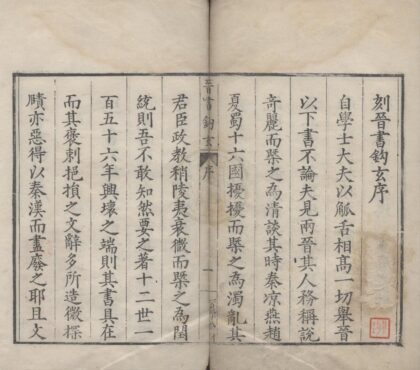 刻晉書鈎玄序
自學士大夫以觚舌相高一切舉晉
以下書不論夫見兩晉其人務稱說
奇麗而槩之為清談其時秦凉燕趙
夏蜀十六國擾擾而槩之為濁亂其
晉書鈎玄
序
一
君臣政教稍陵夷衰微而槩之為閏
統則吾不敢知然要之著十二世一
百五十六年興壞之端則其書具在
而其褒刺挹損之文辭多所造微探
賾亦惡得以秦漢而盡廢之耶且文